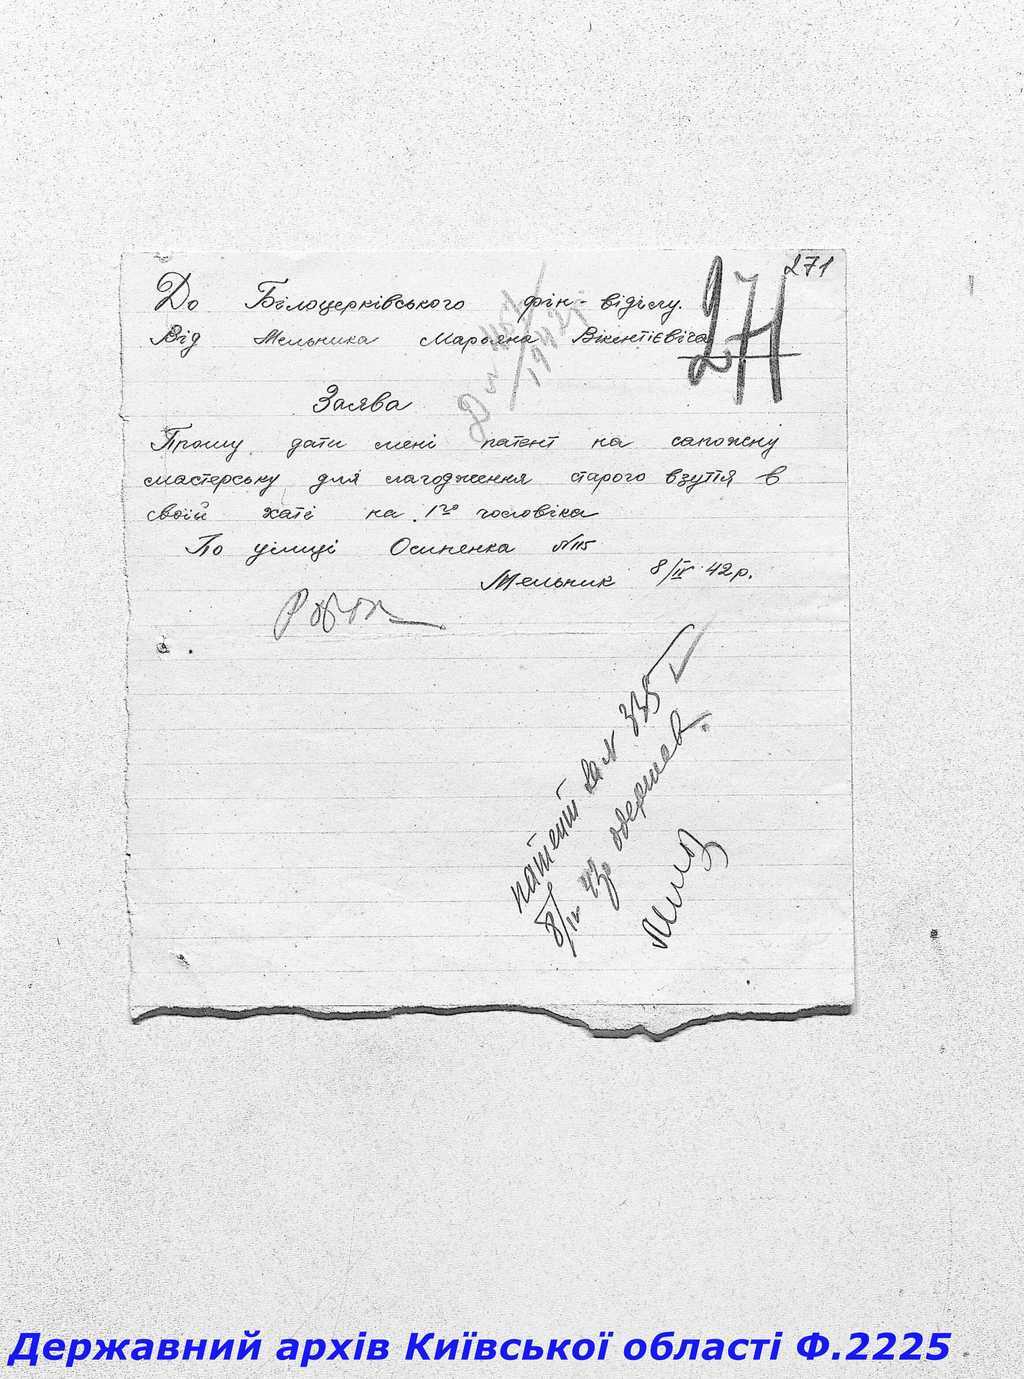 271
271
До Білоцерківського фін-відділу.
Від Мельника Марьяна Вікентієвіча
Заява
Прошу дати мені патент на сапожну
мастерську для лагодження старого взуття в
своїй хаті на 1го чоловіка
По уулиці Осипенка №115
Мельник 8/IV 42р.
патент за № 335
8/IV 42р одержав
Державний архів Київської області Ф.2225